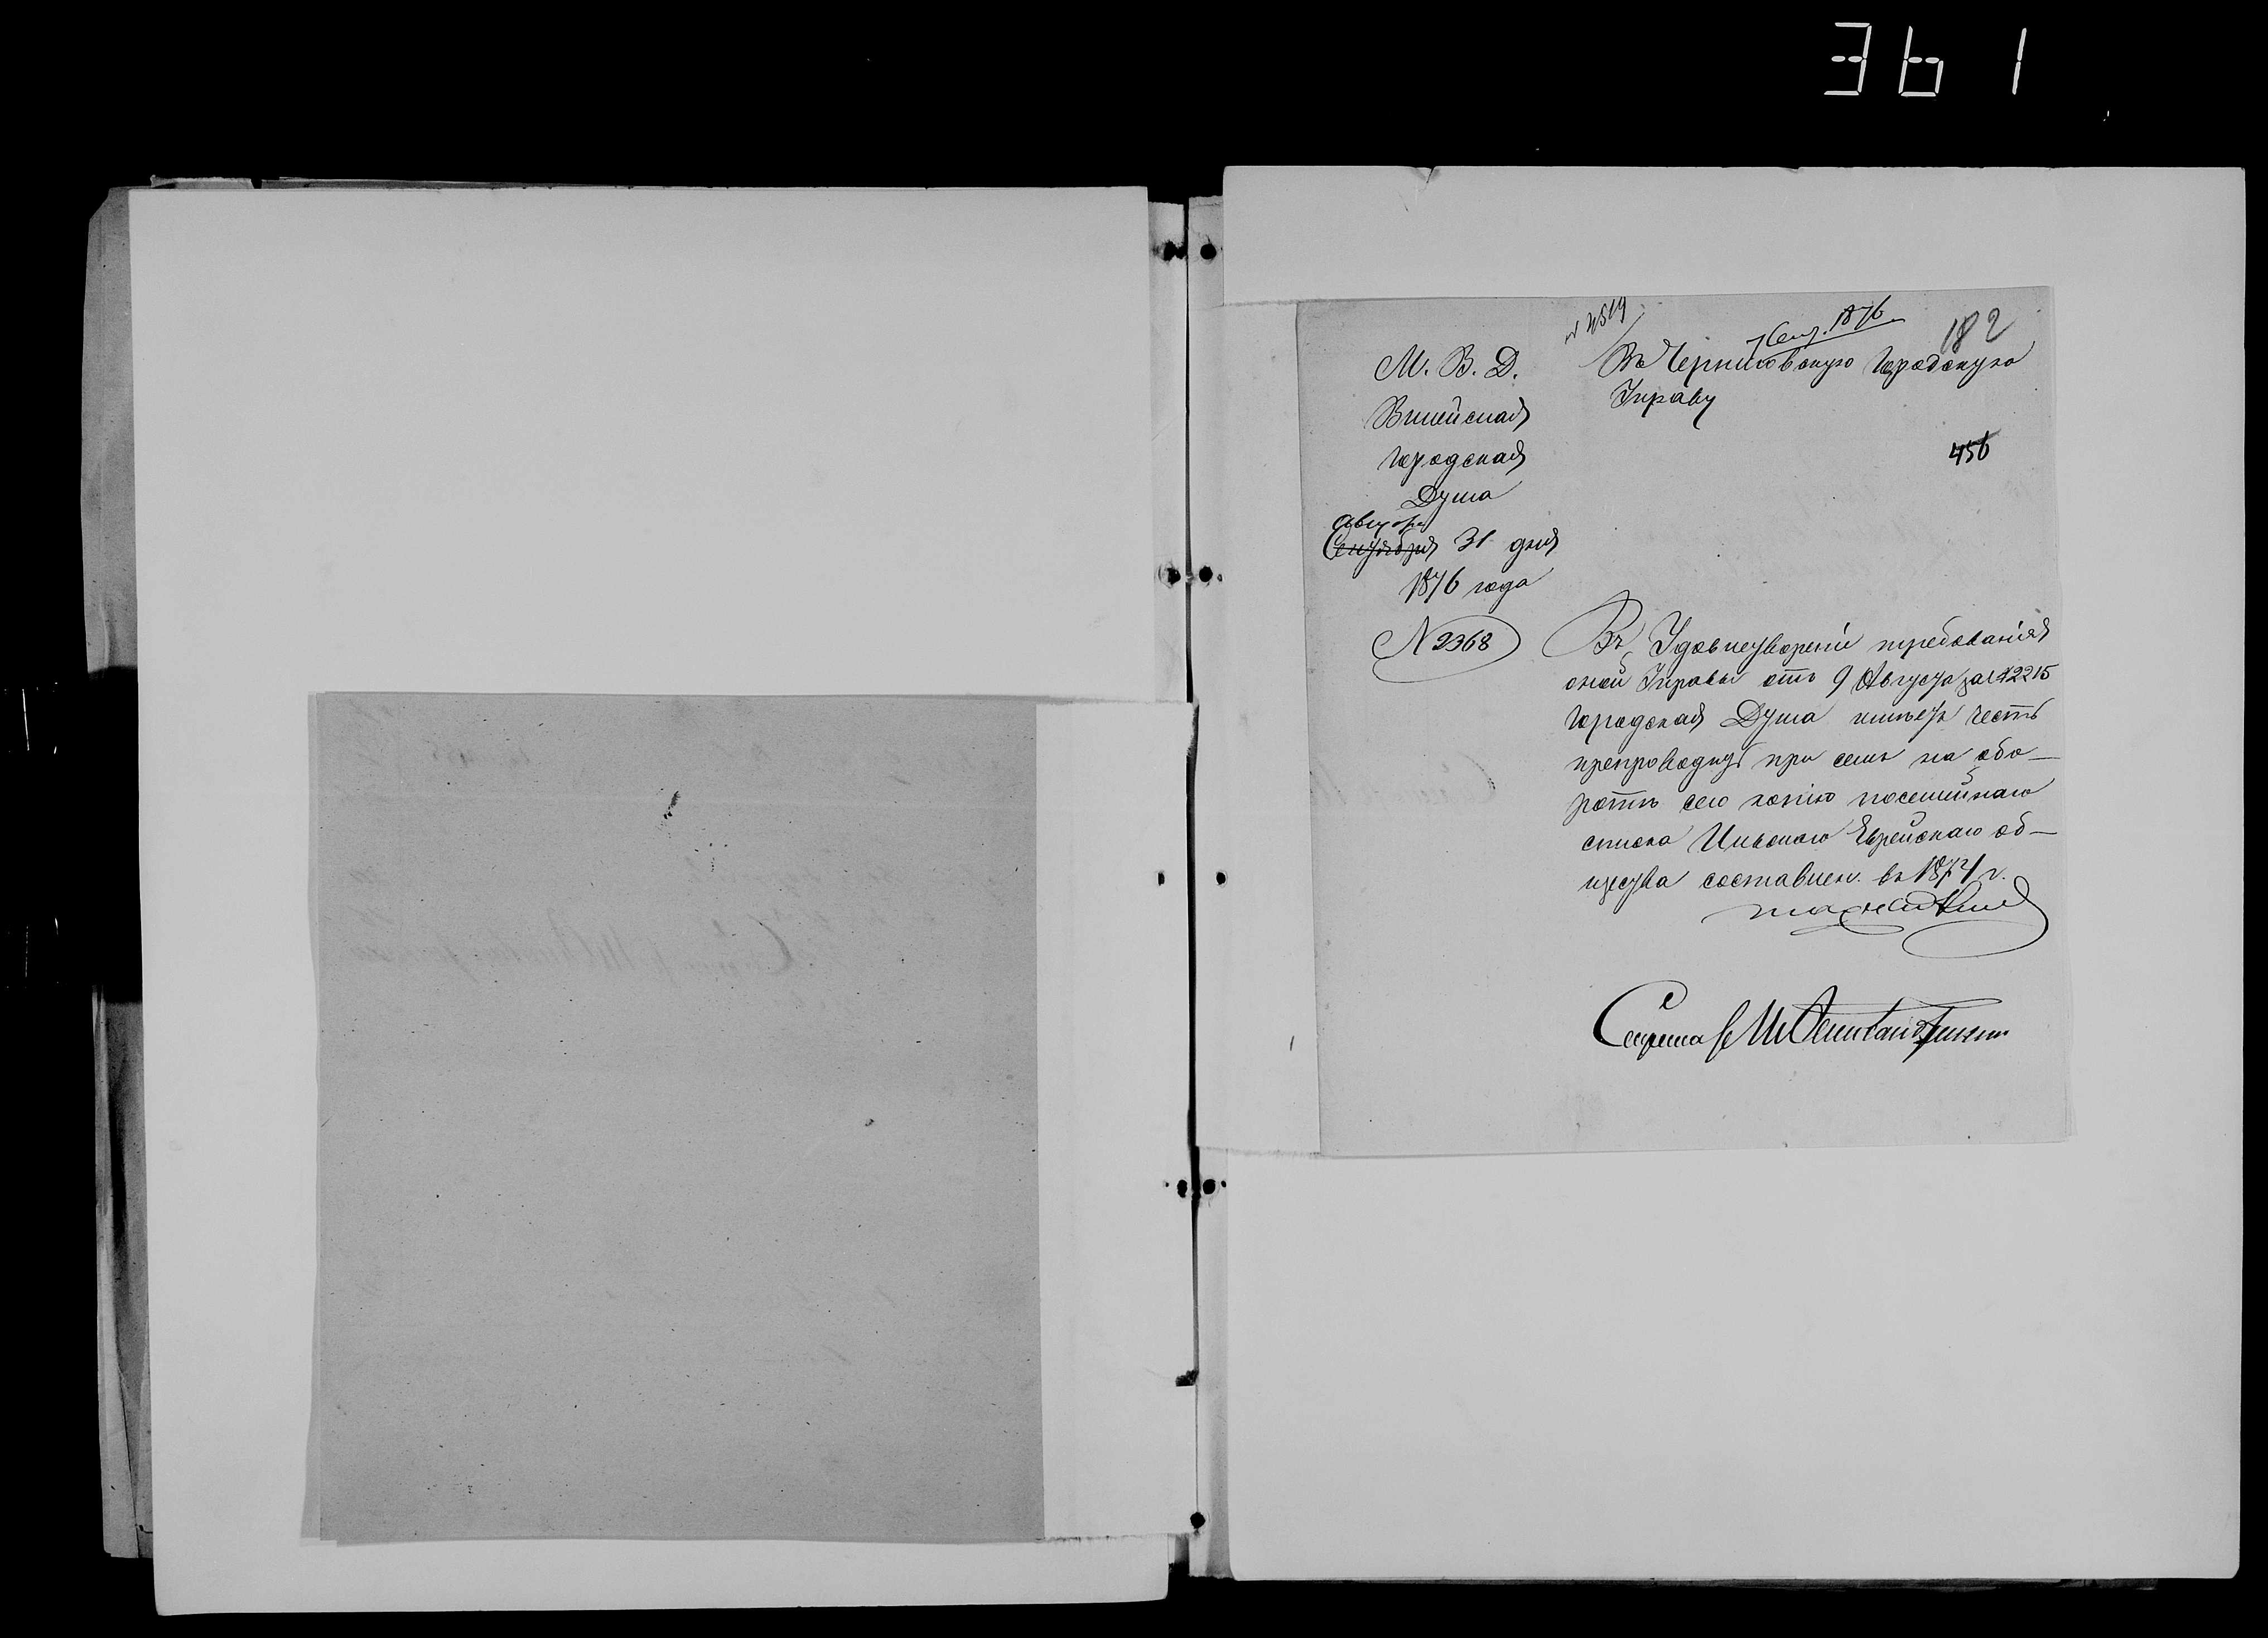 361
№ 4519
7 Сент. 1876
182
М. В. Д.
Вилейская
Городская
Дума
Августа
Сентября 31 дня
1876 года
№ 2368
Въ Черниговскую Городскую
Управу
456
Въ Удовлетвореніи требованія
оной Управы отъ 9 Августа за № 2215
Городская Дума имѣетъ честь
препроводить при семъ на обо-
ротѣ сего копію посемейнаго
списка Ильскаго Еврейскаго об-
щества составлен. въ 1874 г.